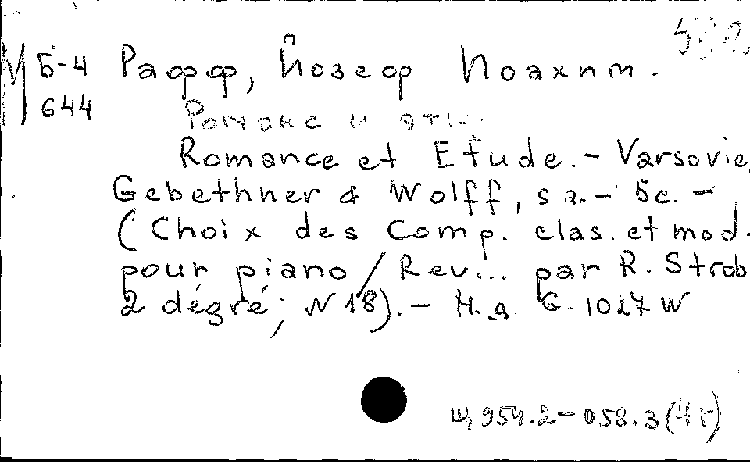 Б-4 Рафф, Йозеф Иоахим.
М 644
Романс и
Romance et Etude. - Varsovie,
Gebethner & Wolff, s a. - 5с. -
(Choix des Comp. clas. et mod.
pour piano / Rev... par R. Strob
2 degré; N 18). - Н.д. G. 1017 W
Щ954.2-058.3(4г)